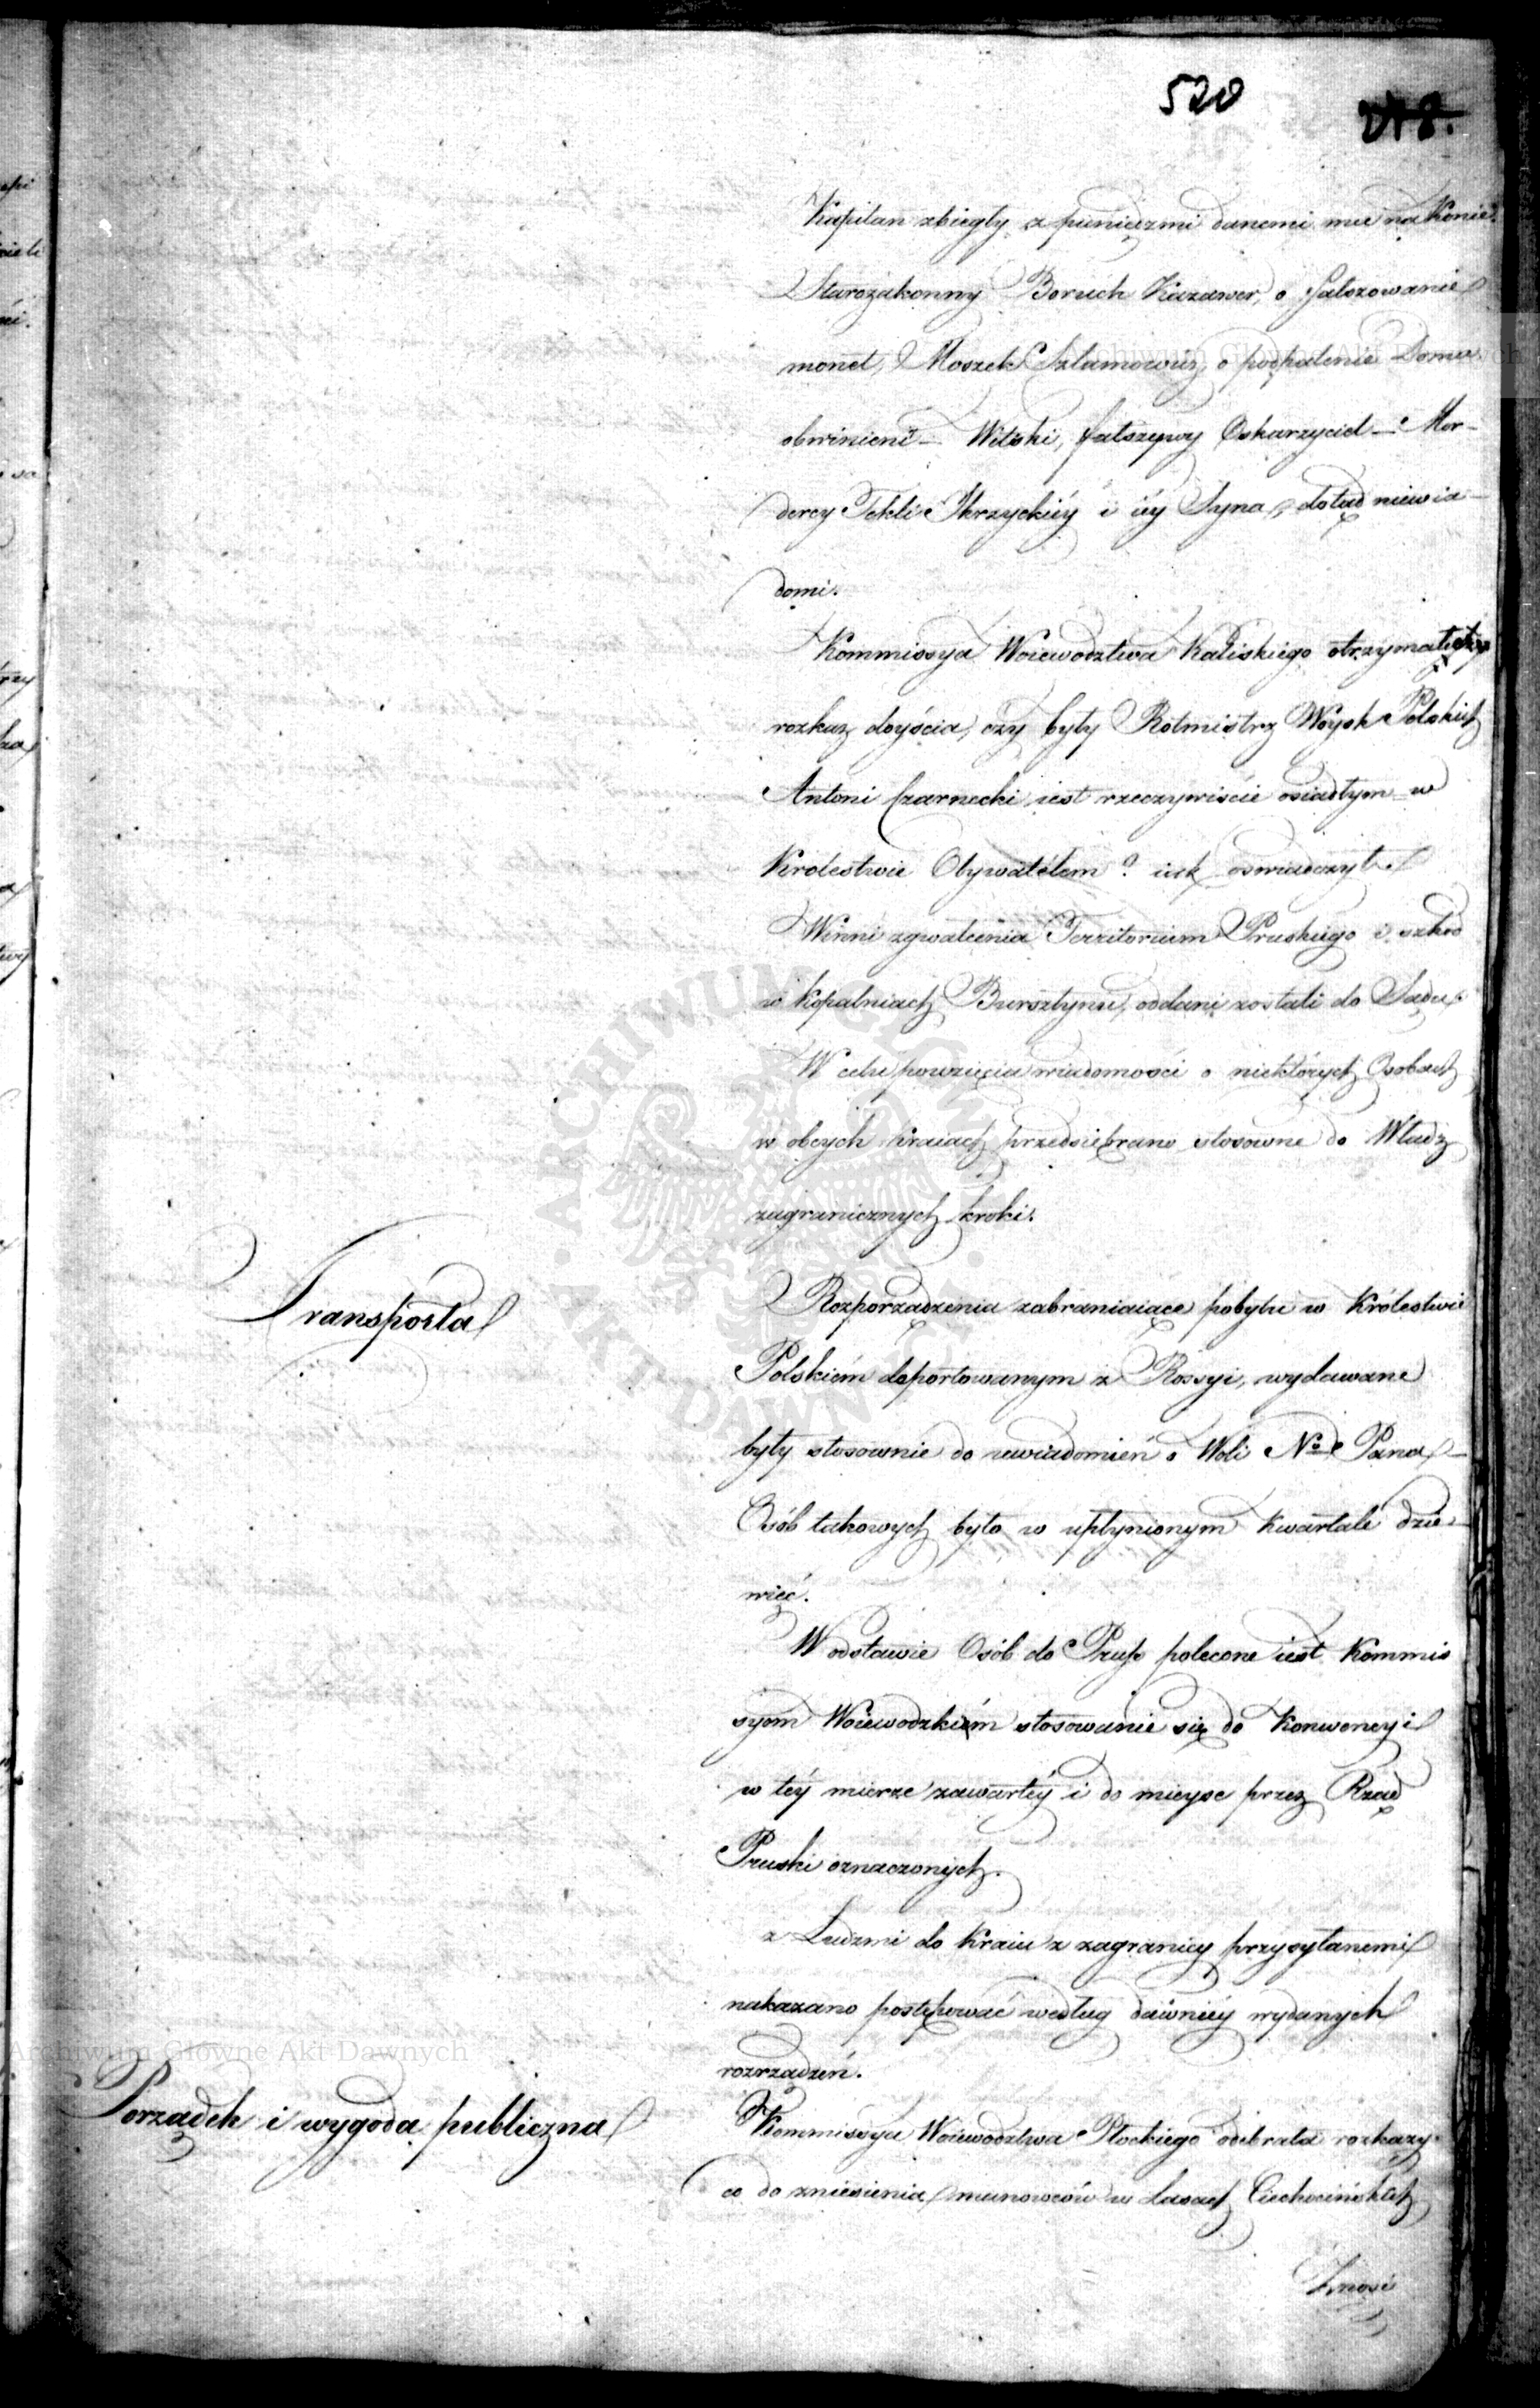 520
218.
Kapitan zbiegły z pieniędzmi danemi mu na Konie.
Starozakonny Boruch Kazawer, o fałszowanie
monet, Moszek Szlamowicz, o podpalenie Domu
obwinieni – Witski, fałszywy Oskarzyciel – Mor-
dercy Tekli Skrzyckiéy i iéy Syna, dotąd niewia-
domi.
Kommissya Woiewodztwa Kaliskiego otrzymała
rozkaz doyścia, czy były Rotmistrz Woysk Polskich
Antoni Czarnecki iest rzeczywiście osiadłym w
Krolestwie Obywatelem? iak oswiadczył.
Winni zgwałcenia Territorium Pruskiego i szkod
w kopalniach Bursztynu, oddani zostali do Sądu.
W celu powzięcia wiadomości o niektórych Osobach
w obcych kraiach przedsiebrano stosowne do Władz
zagranicznych kroki.
Transporta
Rozporządzenia zabraniaiące pobytu w Królestwie
Polskiém deportowanym z Rossyi, wydawane
były stosownie do uwiadomień o Woli No Pana
Osób takowych było w upłynionym Kwartale dzie-
więć.
W odstawie Osób do Prus polecone iest Kommis
syom Woiewodzkim stosowanie się do Konwencyi
w téy mierze zawartéy i do mieysc przez Rząd
Pruski oznaczonych.
z Ludzmi do Kraiu z zagranicy przysyłanemi
nakazano postępować według dawniéy wydanych
rozrządzeń.
Porządek i wygoda publiczna
Kommissya Woiewodztwa Płockiego odebrała rozkazy
co do zniesienia manowców w Lasach Ciechocińskich
Znosi
Archiwum Główne Akt Dawnych
ARCHIWUM GŁÓWNE AKT DAWNYCH